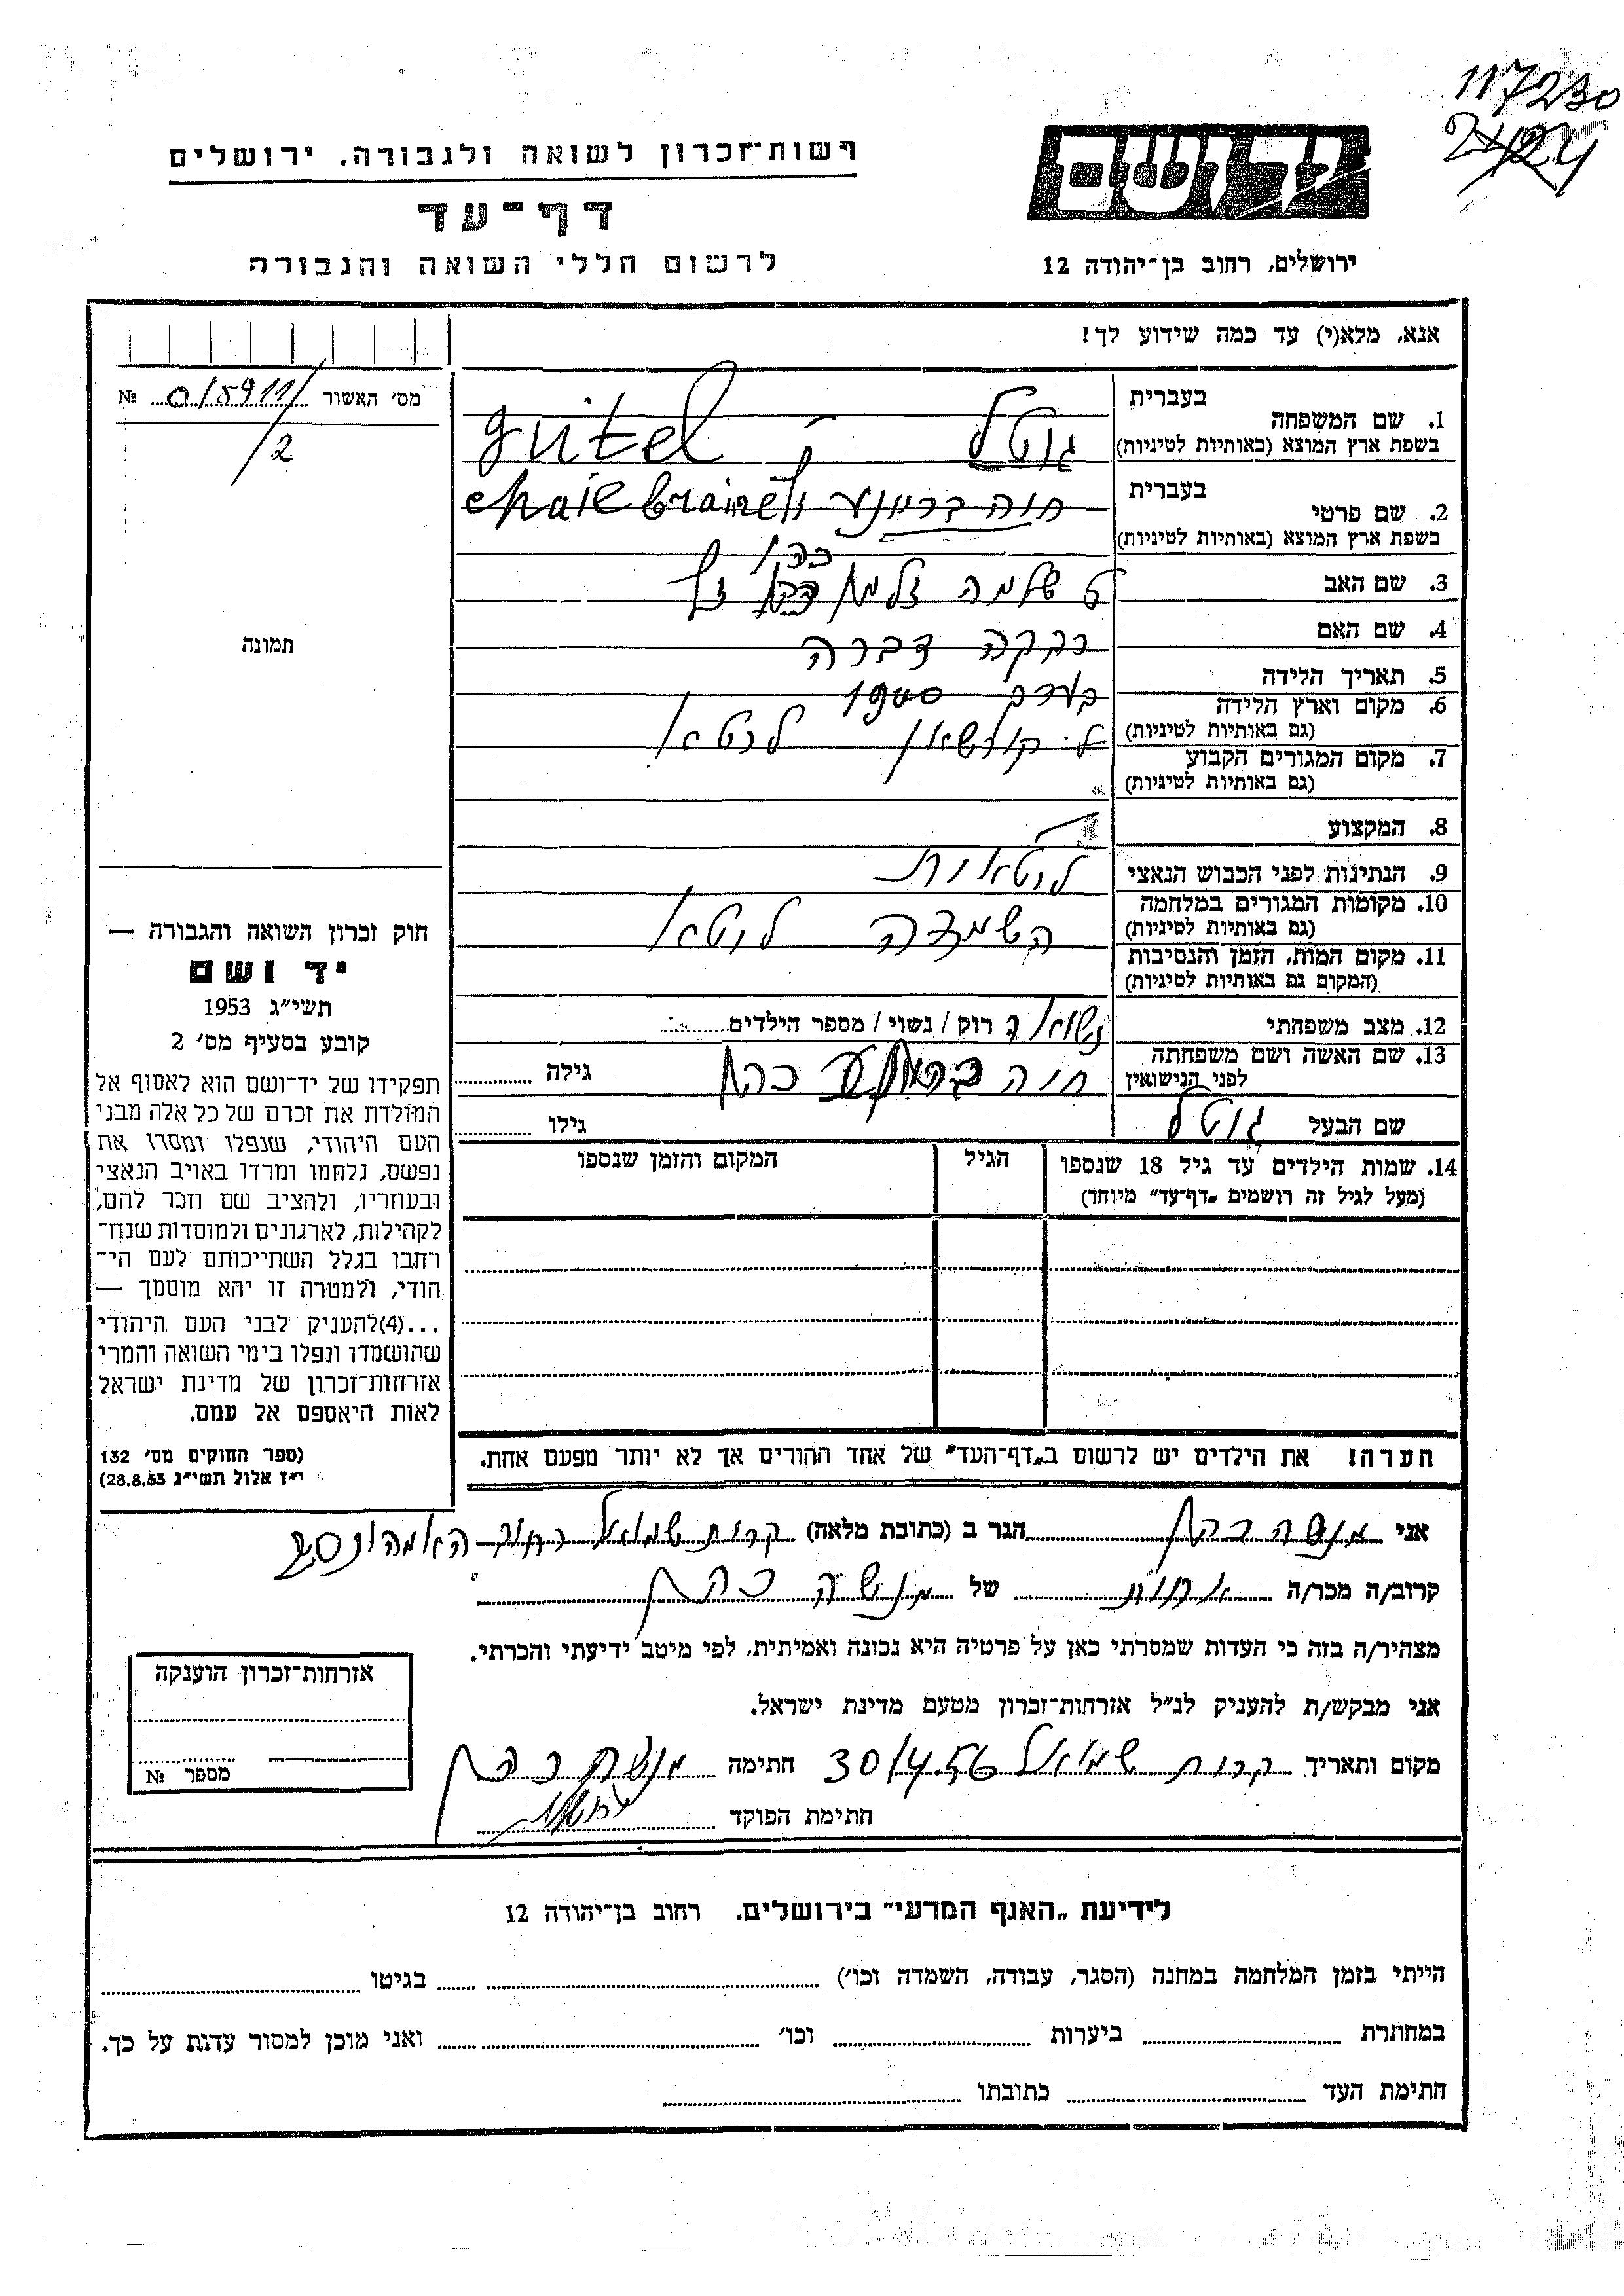 117230
רשות־זכרון לשואה ולגבורה, ירושלים
דף־עד
לרשום חללי השואה והגבורה
ידושם
ירושלים, רחוב בן־יהודה 12
אנא, מלא(י) עד כמה שידוע לך!
מס׳ האשור № 0/5911/
/2
בעברית
1. שם המשפחה
בשפת ארץ המוצא (באותיות לטיניות)
גוטל gutel
בעברית
2. שם פרטי
בשפת ארץ המוצא (באותיות לטיניות)
חיה בריינע chaie braine
3. שם האב
שלמה זלמן כהן ז״ל
4. שם האם
רבקה דברה
5. תאריך הלידה
בערך 1900
6. מקום וארץ הלידה
(גם באותיות לטיניות)
קורשאן ליטא
7. מקום המגורים הקבוע
(גם באותיות לטיניות)
8. המקצוע
9. הנתינות לפני הכבוש הנאצי
ליטאית
10. מקומות המגורים במלחמה
(גם באותיות לטיניות)
השמדה ליטא
11. מקום המות, הזמן והנסיבות
(המקום גם באותיות לטיניות)
12. מצב משפחתי
נשואה רוק / נשוי / מספר הילדים
13. שם האשה ושם משפחתה
לפני הנישואין
חיה בריינע כהן גילה
שם הבעל גוטל גילו
14. שמות הילדים עד גיל 18 שנספו
(מעל לגיל זה רושמים „דף־עד״ מיוחד)
הגיל
המקום והזמן שנספו
הערה! את הילדים יש לרשום ב„דף־העד״ של אחד ההורים אך לא יותר מפעם אחת.
תמונה
חוק זכרון השואה והגבורה —
יד ושם
תשי״ג 1953
קובע בסעיף מס׳ 2
תפקידו של יד־ושם הוא לאסוף אל
המולדת את זכרם של כל אלה מבני
העם היהודי, שנפלו ומסרו את
נפשם, נלחמו ומרדו באויב הנאצי
ובעוזריו, ולהציב שם וזכר להם,
לקהילות, לארגונים ולמוסדות שנח־
רחבו בגלל השתייכותם לעם הי־
הודי, ולמטרה זו יהא מוסמך —
...(4)להעניק לבני העם היהודי
שהושמדו ונפלו בימי השואה והמרי
אזרחות־זכרון של מדינת ישראל
לאות היאספם אל עמם.
(ספר החוקים מס׳ 132
י״ז אלול תשי״ג 28.8.53)
אני מנשה כהן הגר ב (כתובת מלאה) קרית שמואל רחוב
קרוב/ה מכר/ה אחות של מנשה כהן
מצהיר/ה בזה כי העדות שמסרתי כאן על פרטיה היא נכונה ואמיתית, לפי מיטב ידיעתי והכרתי.
אני מבקש/ת להעניק לנ״ל אזרחות־זכרון מטעם מדינת ישראל.
מקום ותאריך קרית שמואל 30/4.56 חתימה מנשה כהן
חתימת הפוקד
אזרחות־זכרון הוענקה
מספר №
לידיעת „האגף המדעי״ בירושלים. רחוב בן־יהודה 12
הייתי בזמן המלחמה במחנה (הסגר, עבודה, השמדה וכו׳) בגיטו
במחתרת ביערות וכו׳ ואני מוכן למסור עדות על כך.
חתימת העד כתובתו